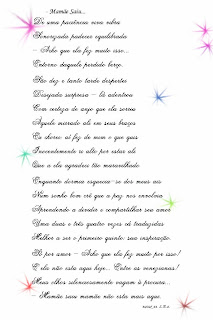 - Mamãe Saiu...
De uma paciência
Sonorizada padecer equilibrada
- Acho que ela fez muito isso...
Entorno daquele perdido berço.
São dez e tanto tardes despertos
Desejada surpresa - lá adentrou
Com certeza de anjo que ela serou
Aquele morado ali em seus braços
Eu chorei ao fez de mim o que quis
Inocentemente ri alto por estar ali
Que a ela agradeci tão maravilhado
Enquanto dormia esqueceu-se dos meus ais
Num sonho bom crê que a paz nos envolvia
Aprendendo a dividir e compartilhar seu amor
Uma duas e três quatro vezes cá traduzidas
Melhor a ser o primeiro quinto: sua inspiração.
Só por amor - Acho que ela fez mudo por isso!
E ela não esta aqui hoje... Entre as venezianas!
Meus olhos silenciosamente vagam à procura...
- Mamãe saiu mamãe não esta mais aqui.